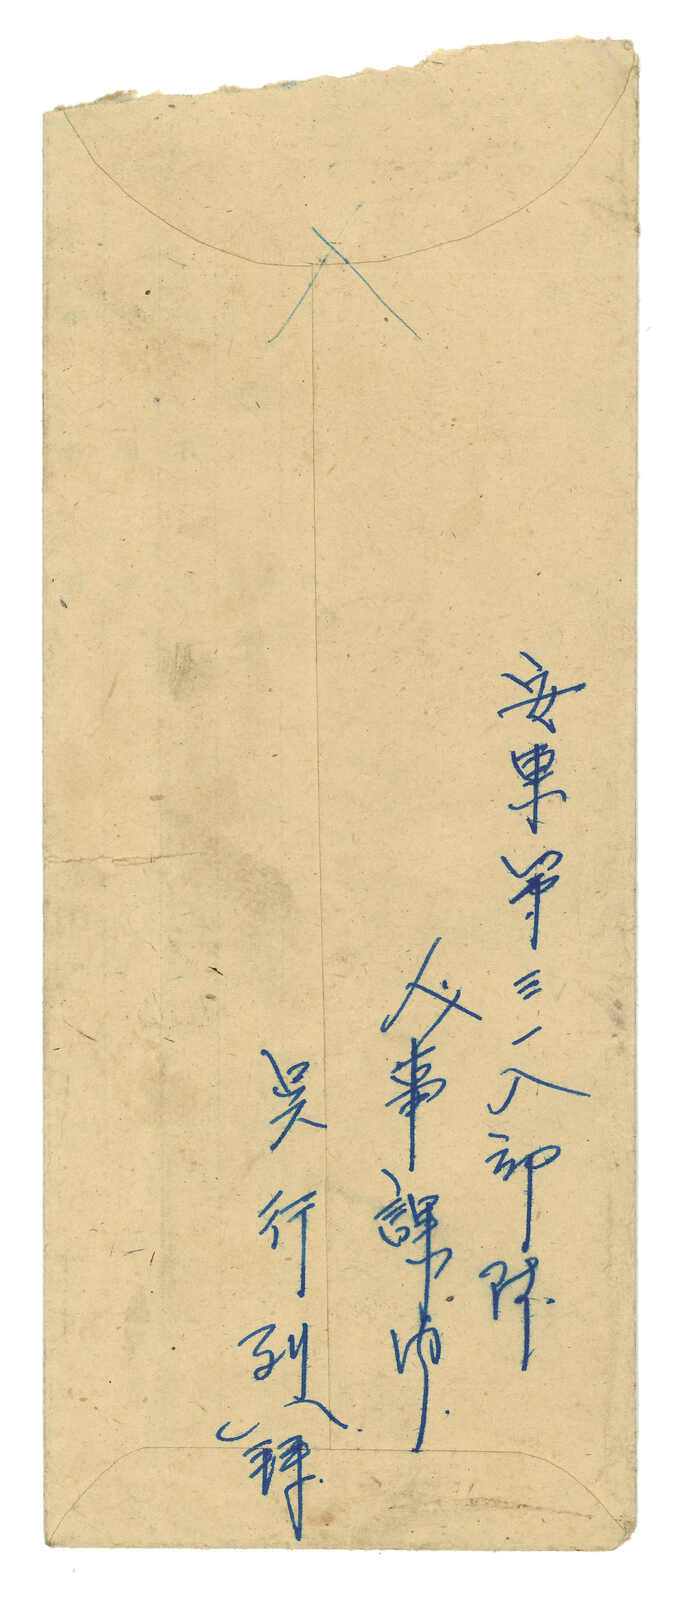 安東第三一八部隊
人事課內
吳行烈 拜